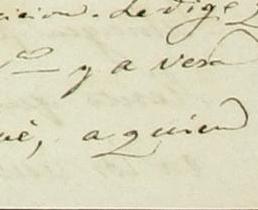 icion. Le dige
y a vera
ué, a quien